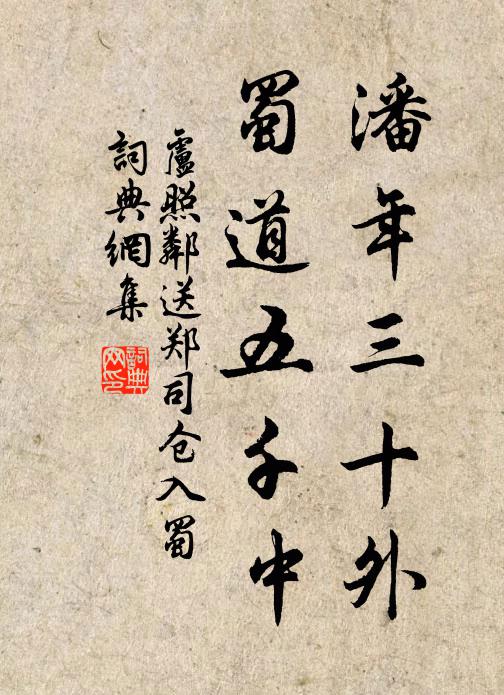 潘年三十外
蜀道五千中
盧照鄰送郑司仓入蜀
詞典網集
詞典网印